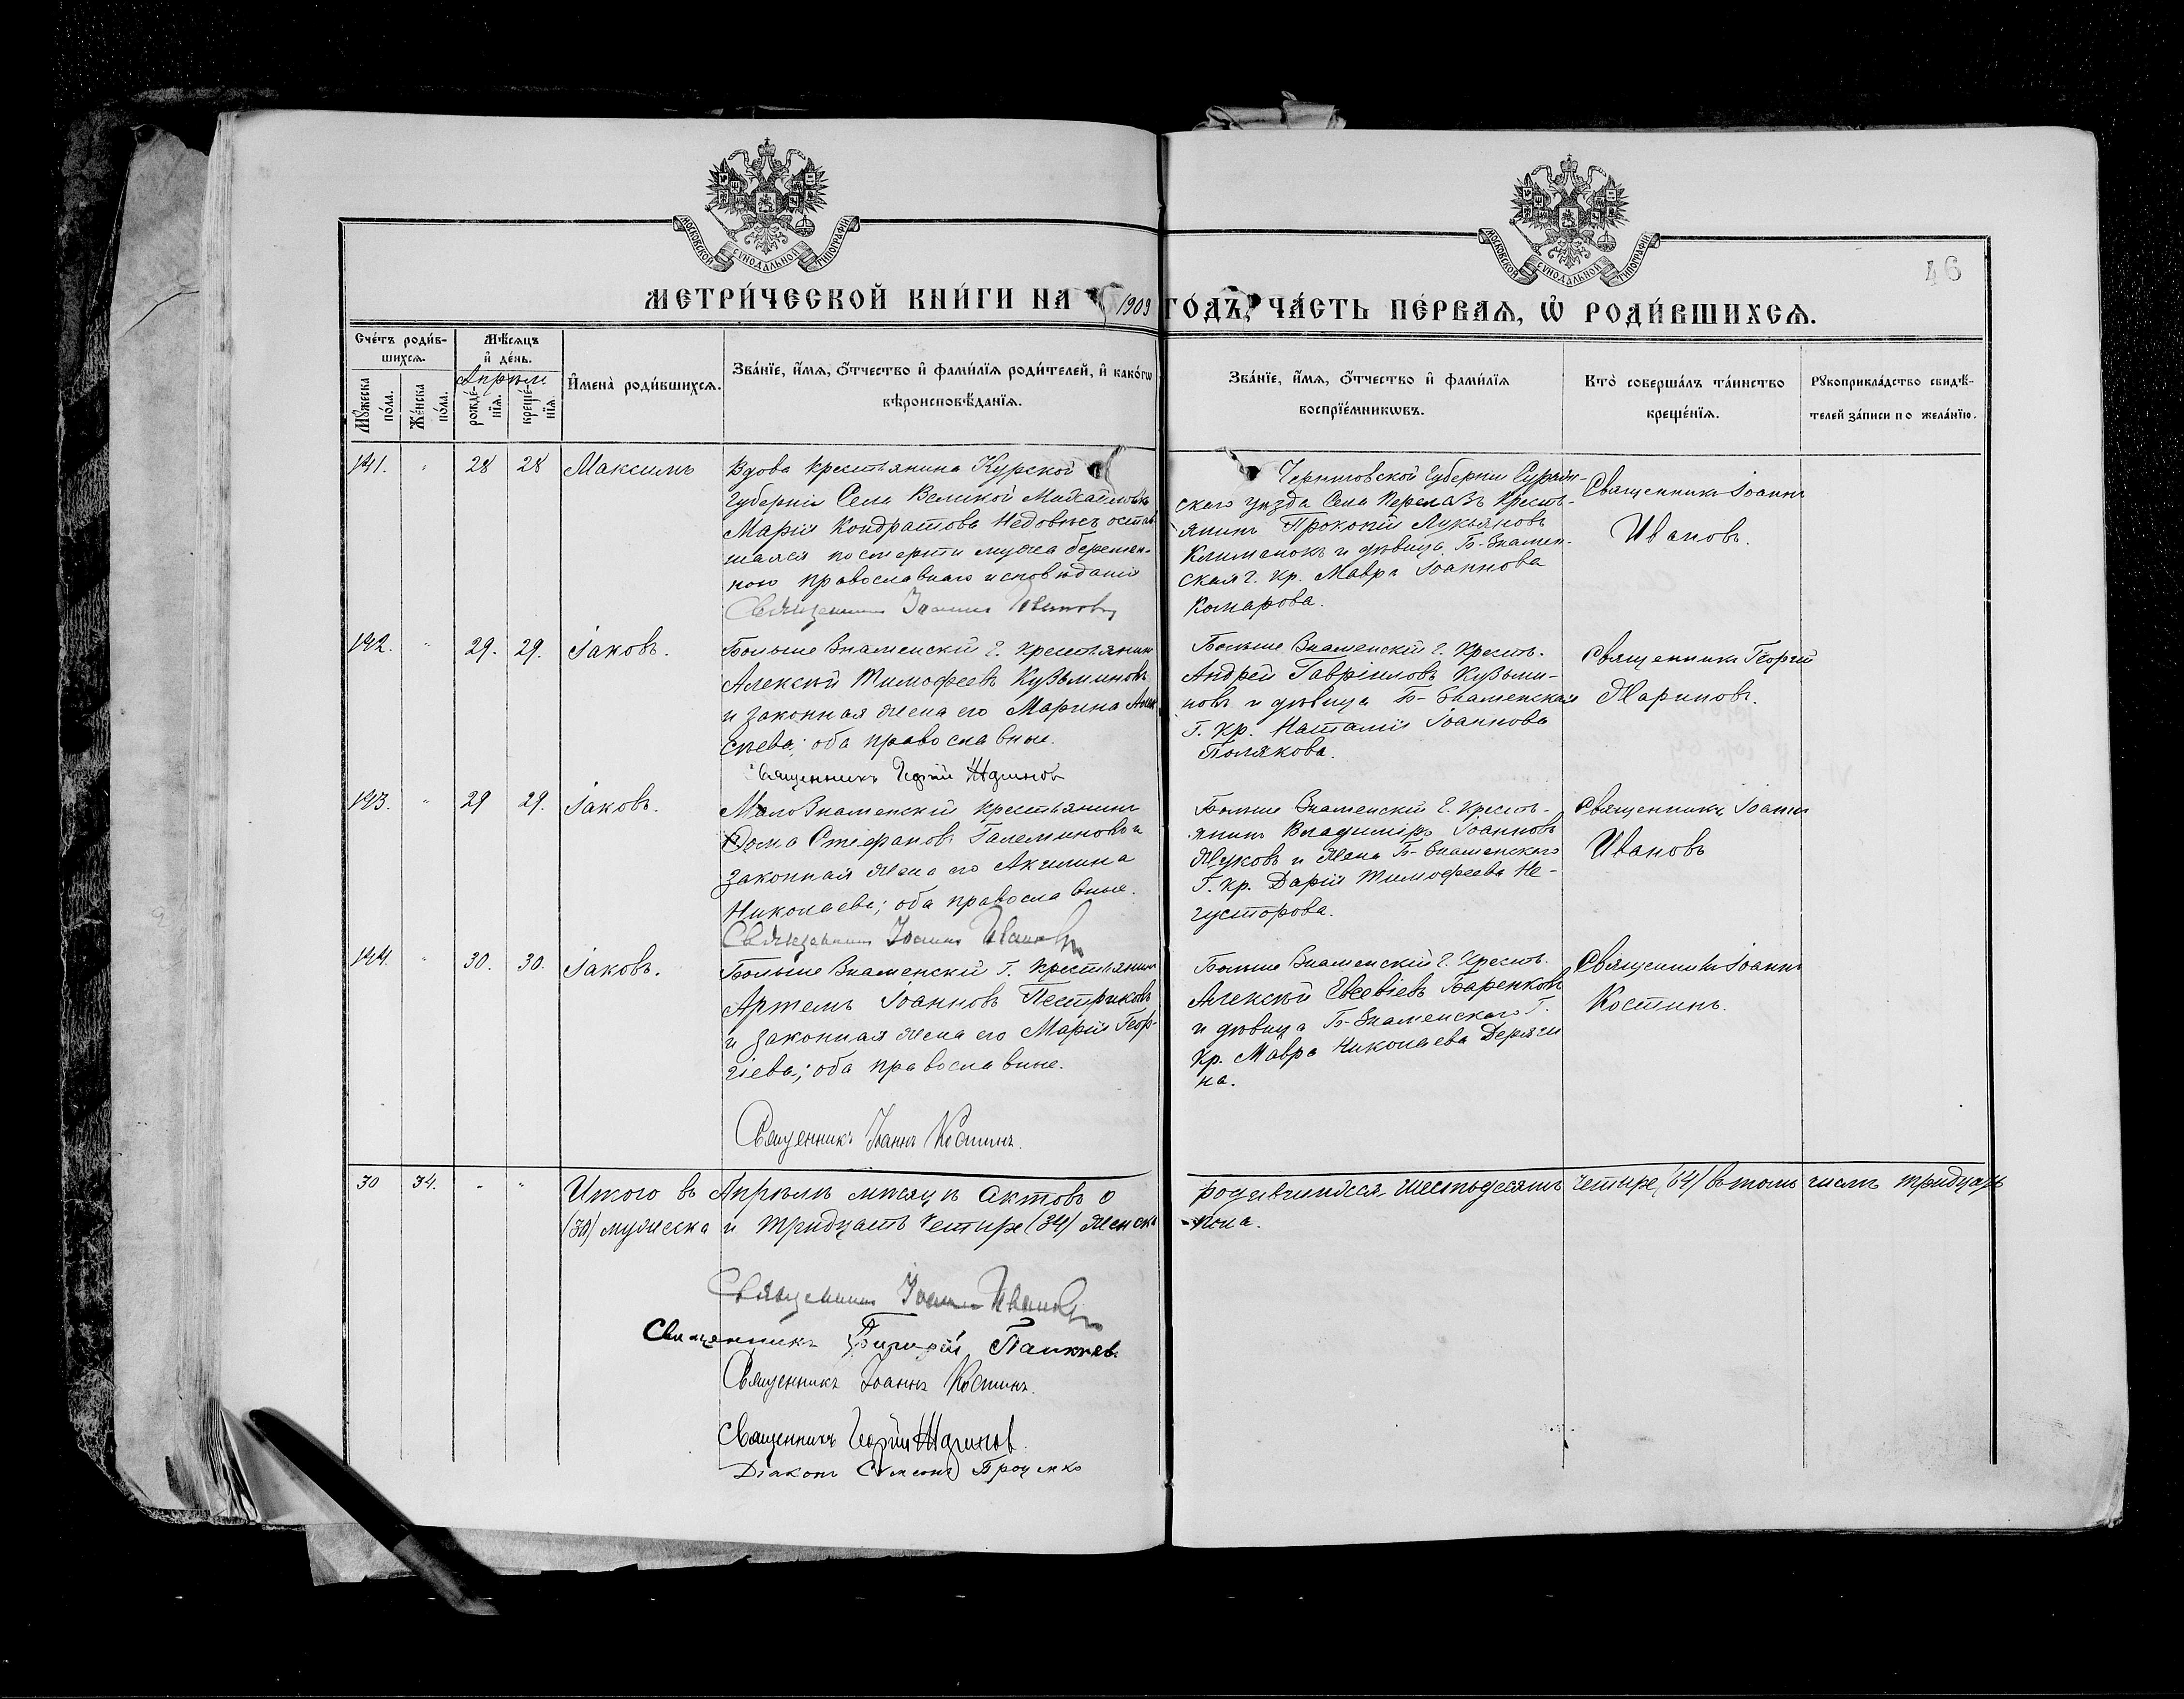 МОСКОВСКОЙ СѴНОДАЛЬНОЙ ТИПОГРАФІИ
МОСКОВСКОЙ СѴНОДАЛЬНОЙ ТИПОГРАФІИ
46
МЕТРИ́ЧЕСКОЙ КНИ́ГИ НА 1909 ГО́ДЪ, ЧА́СТЬ ПЕ́РВАЯ, Ѡ҆ РОДИ́ВШИХСЯ.
Сче́тъ роди́в-
шихся.
Мѣ́сяцъ
и҆ де́нь.
Апрѣль
Мꙋ́жеска по́ла.
Же́нска по́ла.
рожде́-нїя.
креще́-нїя.
И҆мена̀ роди́вшихся.
Зва́нїе, и҆́мя, о҆́тчество и҆ фами́лїя роди́телей, и҆ како́гѡ
вѣроисповѣ́данїя.
Зва́нїе, и҆́мя, о҆́тчество и҆ фами́лїя
воспрїе́мникѡвъ.
Кто̀ соверша́лъ та́инство
креще́нїя.
Рꙋкоприкла́дство свидѣ́-
телей за́писи по жела́нїю.
141. " 28 28 Максимъ
Вдова крестьянина Курской
Губерніи Села Великой Михайловки
Марія Кондратова Недовѣсъ остав
шаяся посмерти мужа беремен-
ною православнаго исповѣданія
Священникъ Іоаннъ Ивановъ
Черниговской Губерніи Сураж-
скаго уѣзда Села Перелазъ Кресть-
янинъ Прокопій Лукьяновъ
Клименокъ и дѣвица Б-Знамен-
ская г. кр. Мавра Іоаннова
Комарова.
Священникъ Іоаннъ
Ивановъ.
142. " 29. 29. Іаковъ.
Больше Знаменскій г. крестьянинъ
Алексій Тимофеевъ Кузьминовъ
и законная жена его Марина Алек
сѣева; оба православные.
Священникъ Георгій Жариновъ
Больше Знаменскій г. Крест.
Андрей Гавріиловъ Кузьми-
новъ и дѣвица Б-Знаменская
Г. Кр. Наталія Іоаннова
Полякова.
Священникъ Георгій
Жариновъ.
143. " 29 29. Іаковъ.
Мало Знаменскій крестьянинъ
Ѳома Стефановъ Галеминовъ и
законная жена его Акилина
Николаева; оба православные.
Священникъ Іоаннъ Ивановъ
Больше Знаменскій г. крест-
янинъ Владиміръ Іоанновъ
Жуковъ и жена Б-Знаменскаго
Г. кр. Дарія Тимофеева Не-
густорова.
Священникъ Іоаннъ
Ивановъ
144. " 30. 30. Іаковъ.
Больше Знаменскій г. крестьянинъ
Артемъ Іоанновъ Пестриковъ
и законная жена его Марія Геор-
гіева; оба православные.
Священникъ Іоаннъ Костинъ.
Больше Знаменскій г. Крест.
Алексій Евсевіевъ Баренковъ
и дѣвица Б-Знаменскаго Г.
Кр. Мавра Николаева Деряги
на.
Священникъ Іоаннъ
Костинъ.
30 34. - " Итого въ Апрѣлѣ мѣсяцѣ актовъ о родившихся шестьдесятъ четыре (64) въ томъ числѣ тридцать
(30) мужеска и тридцать четыре (34) женска пола.
Священникъ Іоаннъ Ивановъ
Священникъ
Священникъ Іоаннъ Костинъ.
Священникъ Георгій Жариновъ.
Діаконъ Симеонъ Проценко